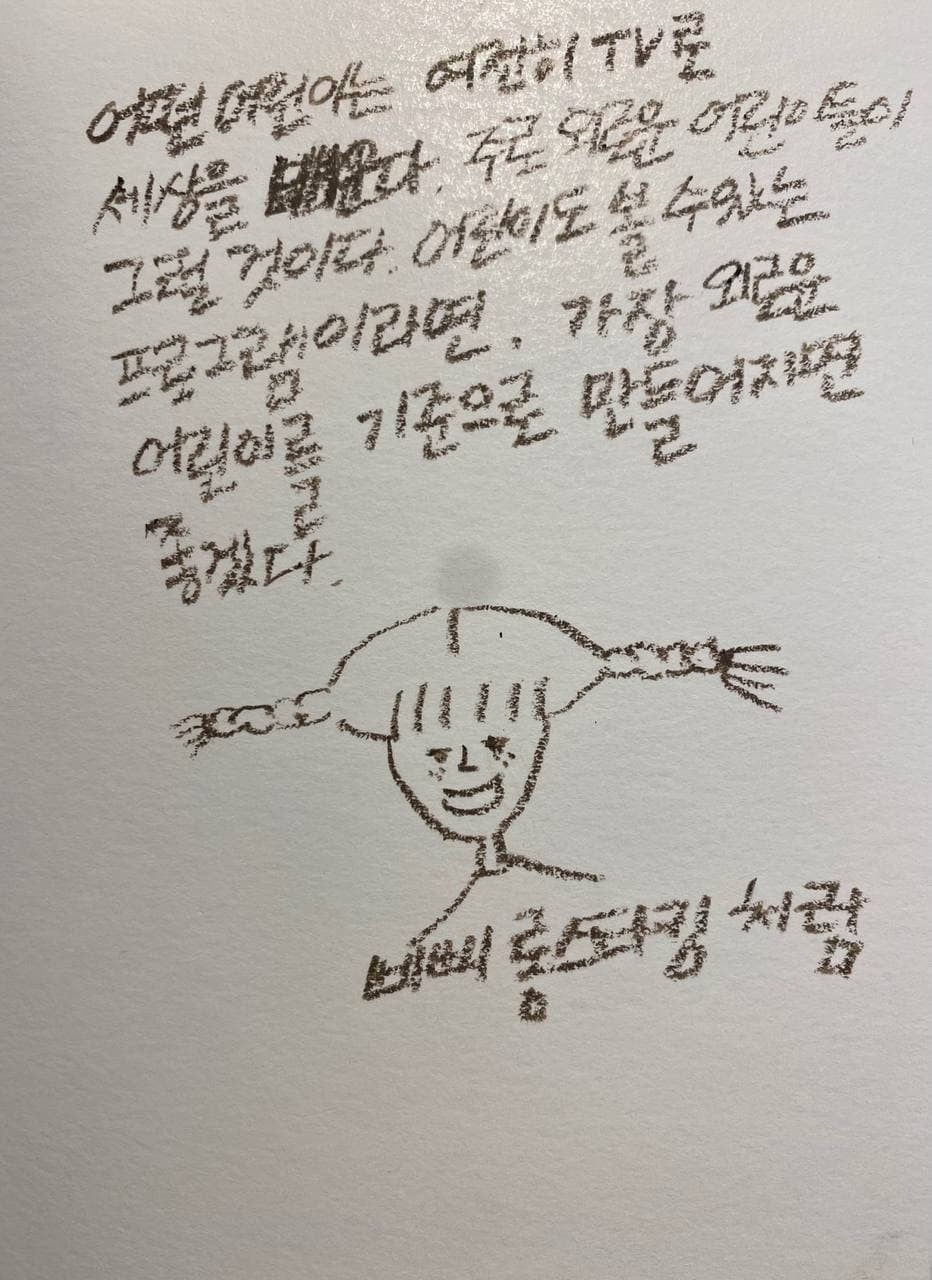 어떤 어린이는 여전히 TV로
세상을 배운다. 주로 외로운 어린이들이
그럴 것이다. 어린이도 볼 수 있는
프로그램이라면, 가장 외로운
어린이를 기준으로 만들어지면
좋겠다.
삐삐 롱스타킹 처럼